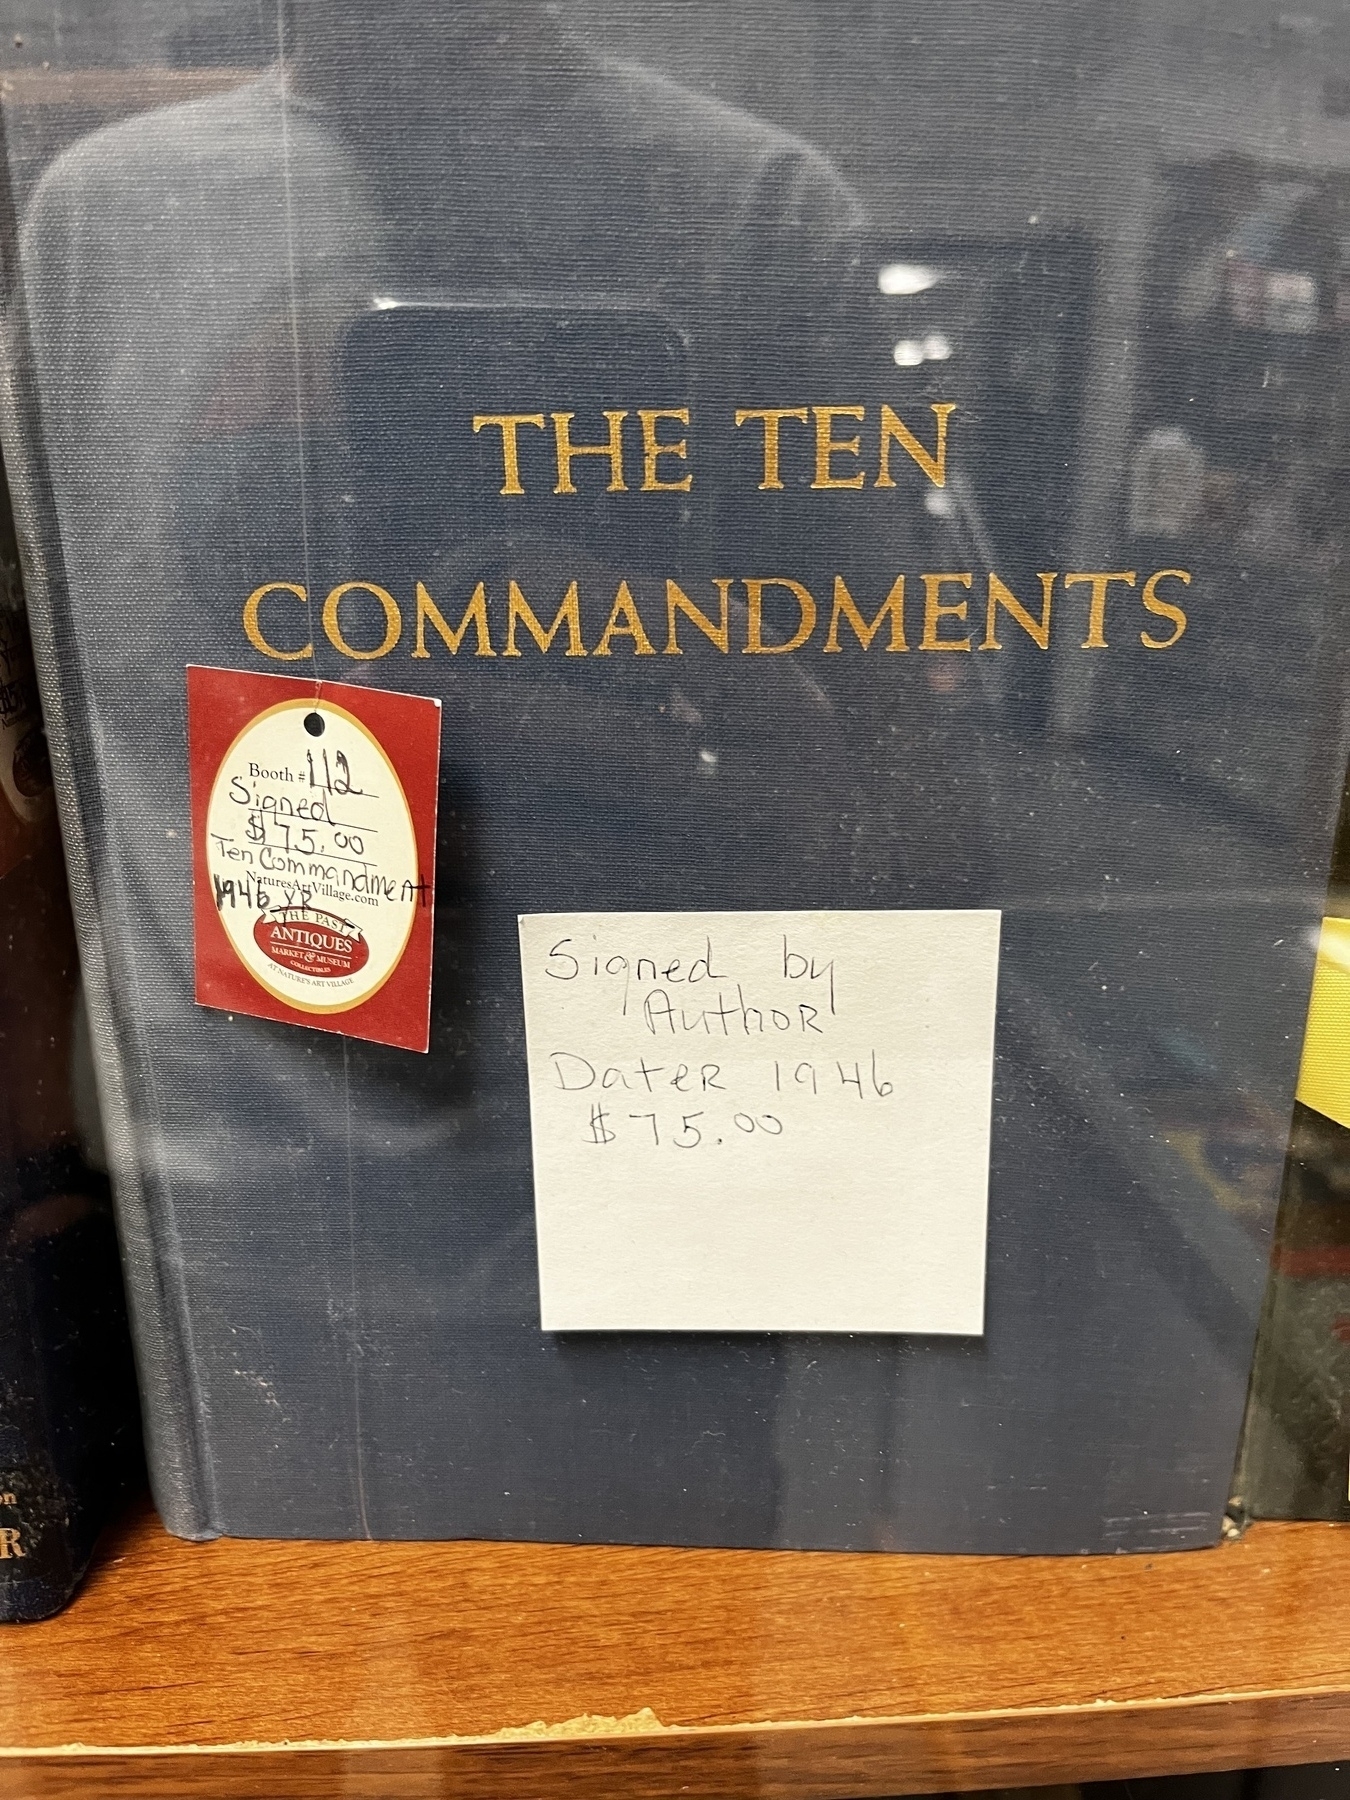 THE TEN
COMMANDMENTS
Booth # 112
Signed
$75.00
Ten Commandment
NaturesArtVillage.com
1946 YR
THE PAST
ANTIQUES
MARKET & MUSEUM
COLLECTIBLES
AT NATURE'S ART VILLAGE
Signed by
Author
Dater 1946
$75.00
R